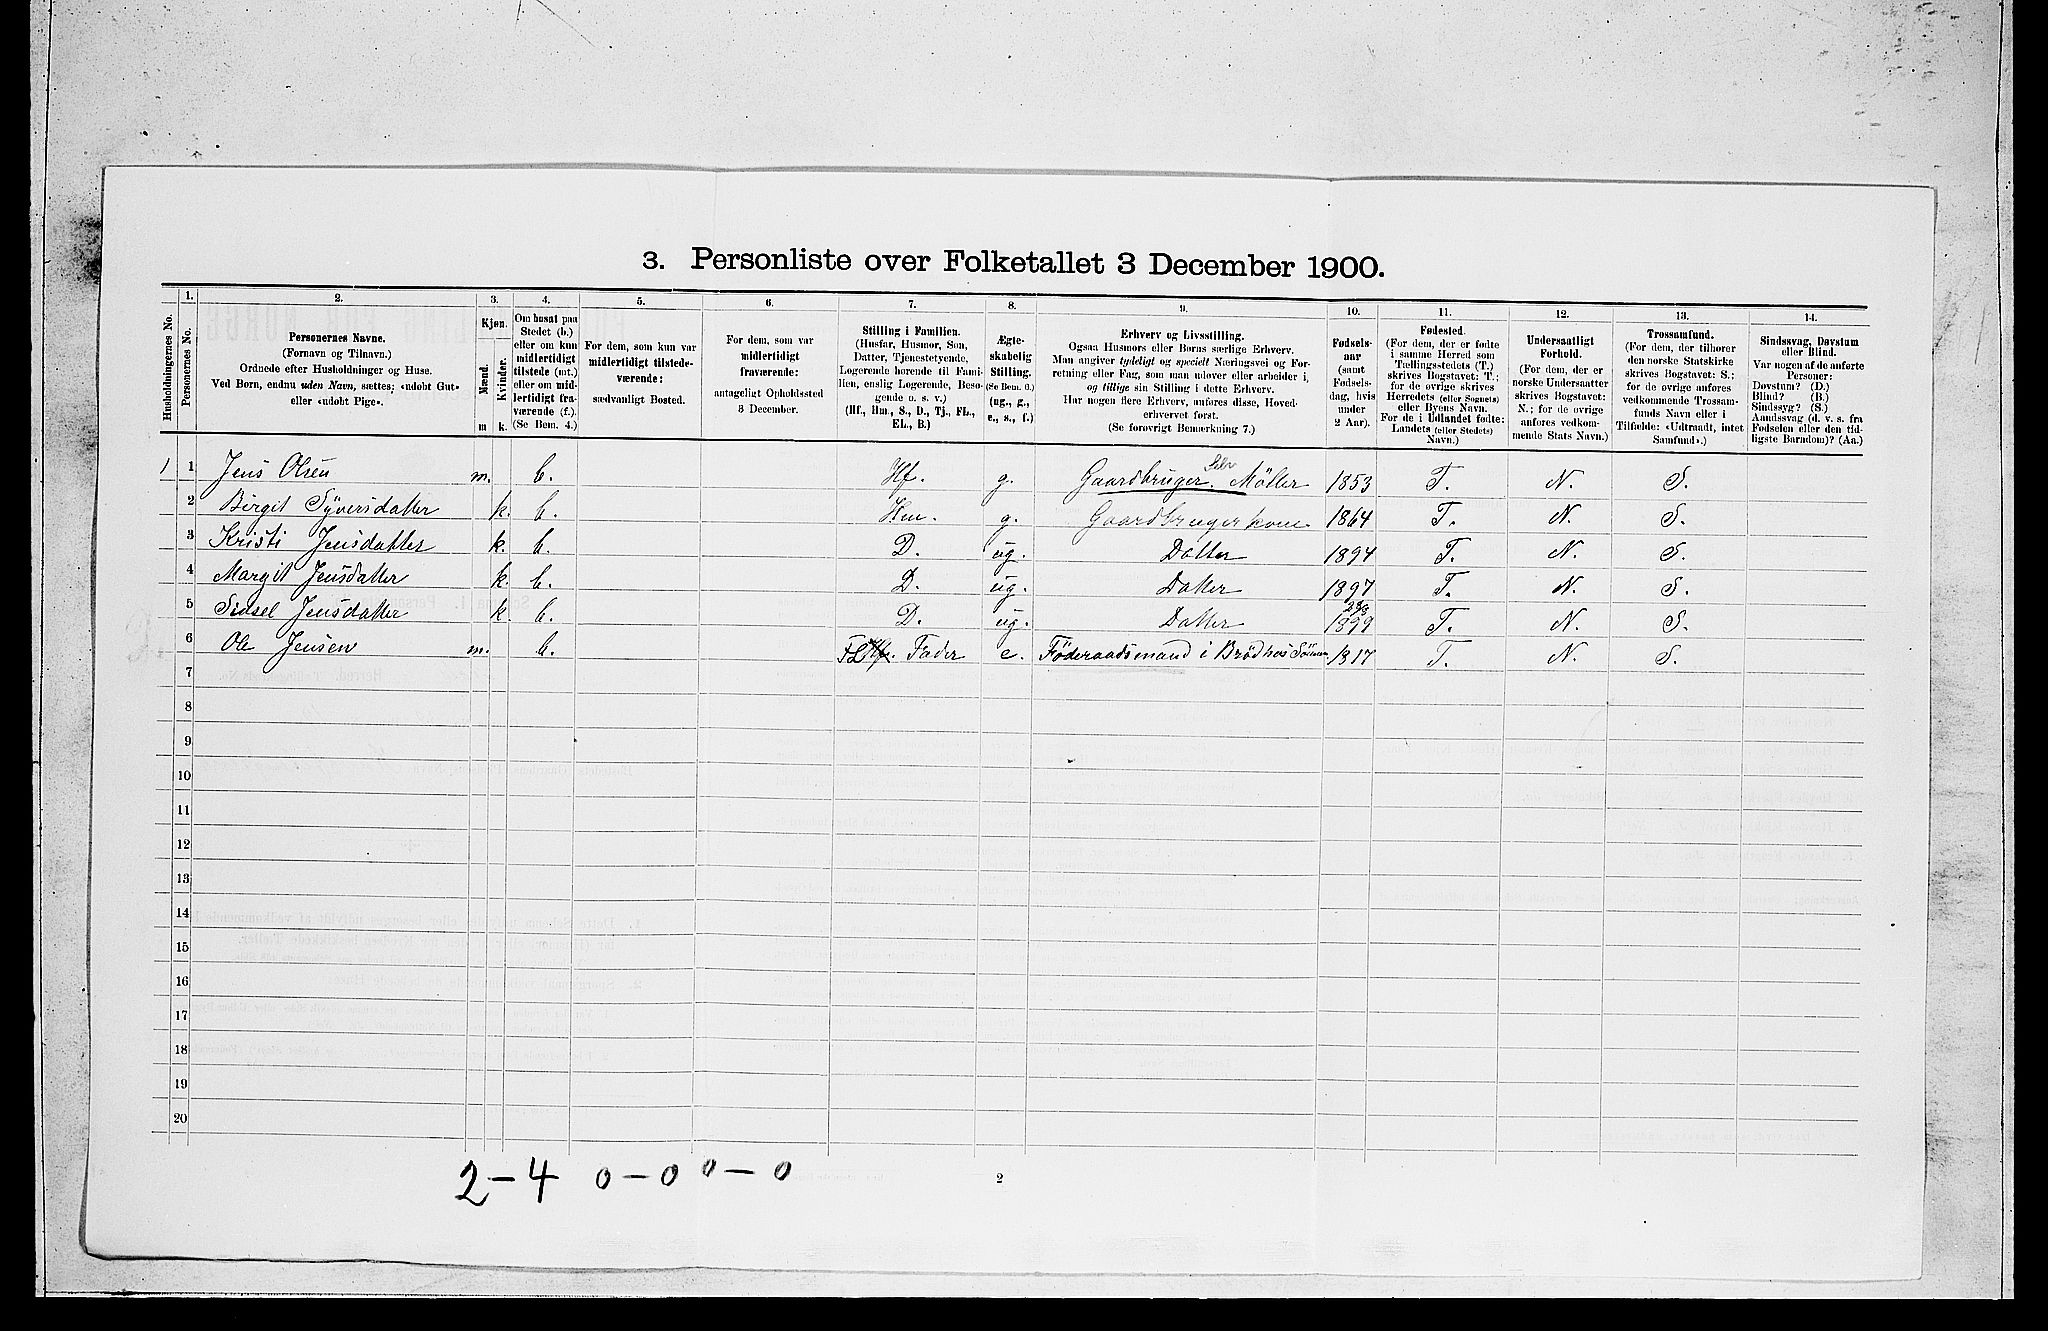 3. Personliste over Folketallet 3 December 1900.
Husholdningernes No.
1. Personernes No.
2. Personernes Navne.
(Fornavn og Tilnavn.)
Ordnede efter Husholdninger og Huse.
Ved Børn, endnu uden Navn, sættes: «udøbt Gut»
eller «udøbt Pige».
3. Kjøn.
Mænd. Kvinder.
m k.
4. Om bosat paa
Stedet (b.)
eller om kun
midlertidigt
tilstede (mt.)
eller om mid-
lertidigt fra-
værende (f.).
(Se Bem. 4.)
5. For dem, som kun var
midlertidigt tilstede-
værende:
sædvanligt Bosted.
6. For dem, som var
midlertidigt
fraværende:
antageligt Opholdssted
3 December.
7. Stilling i Familien.
(Husfar, Husmor, Søn,
Datter, Tjenestetyende,
Logerende hørende til Fami-
lien, enslig Logerende, Besø-
gende o. s. v.)
(Hf., Hm., S., D., Tj., FL.,
EL., B.)
8. Ægte-
skabelig
Stilling.
(Se Bem. 6.)
(ug., g.,
e., s., f.)
9. Erhverv og Livsstilling.
Ogsaa Husmors eller Børns særlige Erhverv.
Man angiver tydeligt og specielt Næringsvei og For-
retning eller Fag, som man udøver eller arbeider i,
og tillige sin Stilling i dette Erhverv.
Har nogen flere Erhverv, anføres disse, Hoved-
erhvervet først.
(Se forøvrigt Bemærkning 7.)
10. Fødsels-
aar
(samt
Fødsels-
dag, hvis
under
2 Aar).
11. Fødested.
(For dem, der er fødte
i samme Herred som
Tællingsstedets (T.)
skrives Bogstavet: T.;
for de øvrige skrives
Herredets (eller Sognets)
eller Byens Navn.
For de i Udlandet fødte:
Landets (eller Stedets)
Navn.)
12. Undersaatligt
Forhold.
(For dem, der er
norske Undersaatter
skrives Bogstavet:
N.; for de øvrige
anføres vedkom-
mende Stats Navn.)
13. Trossamfund.
(For dem, der tilhører
den norske Statskirke
skrives Bogstavet: S.;
for de øvrige anføres
vedkommende Trossam-
funds Navn eller i
Tilfælde: «Udtraadt, intet
Samfund».)
14. Sindssvag, Døvstum
eller Blind.
Var nogen af de anførte
Personer:
Døvstum? (D.)
Blind? (B.)
Sindssyg? (S.)
Aandssvag (d. v. s. fra
Fødselen eller den tid-
ligste Barndom)? (Aa.)
1 1 Jens Olsen m. b. Hf. g. Gaardbruger. Selv Møller 1853 T. N. S.
2 Birgit Syversdatter k. b. Hm. g. Gaardbrugerkone 1864 T. N. S.
3 Kristi Jensdatter k. b. D. ug. Datter 1894 T. N. S.
4 Margit Jensdatter k. b. D. ug. Datter 1897 T. N. S.
5 Sidsel Jensdatter k. b. D. ug. Datter 1899 T. N. S.
6 Ole Jensen m. b. FL Hf. Fader e. Föderaadsmand i Brödhos Sönnen 1817 T. N. S.
7
8
9
10
11
12
13
14
15
16
17
18
19
20
2 – 4 0 – 0 0 – 0
2